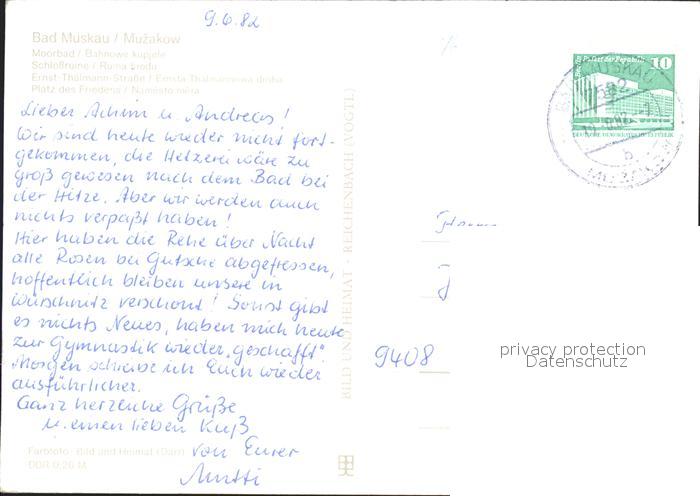 9.6.82
Bad Muskau / Mužakow
Moorbad / Bahnowe kupjele
Schloßruine / Ruina hrodu
Ernst-Thälmann-Straße / Ernsta Thälmannowa droha
Platz des Friedens / Naměsto měra
Lieber Achim u. Andreas!
Wir sind heute wieder nicht fort-
gekommen, die Hetzerei wäre zu
groß gewesen nach dem Bad bei
der Hitze. Aber wir werden auch
nichts verpaßt haben!
Hier haben die Rehe über Nacht
alle Rosen bei Gutsche abgefressen,
hoffentlich bleiben unsere in
Würschnitz verschont! Sonst gibt
es nichts Neues, haben mich heute
zur Gymnastik wieder "geschafft".
Morgen schreibe ich Euch wieder
ausführlicher.
Ganz herzliche Grüße
u. einen lieben Kuß
von Eurer
Mutti
Farbfoto: Bild und Heimat (Darr)
DDR 0,20 M
BILD UND HEIMAT · REICHENBACH (VOGTL)
Berlin Palast der Republik 10
DEUTSCHE DEMOKRATISCHE REPUBLIK
BAD MUSKAU
7582
b
MUŽAKOW
9408
privacy protection
Datenschutz